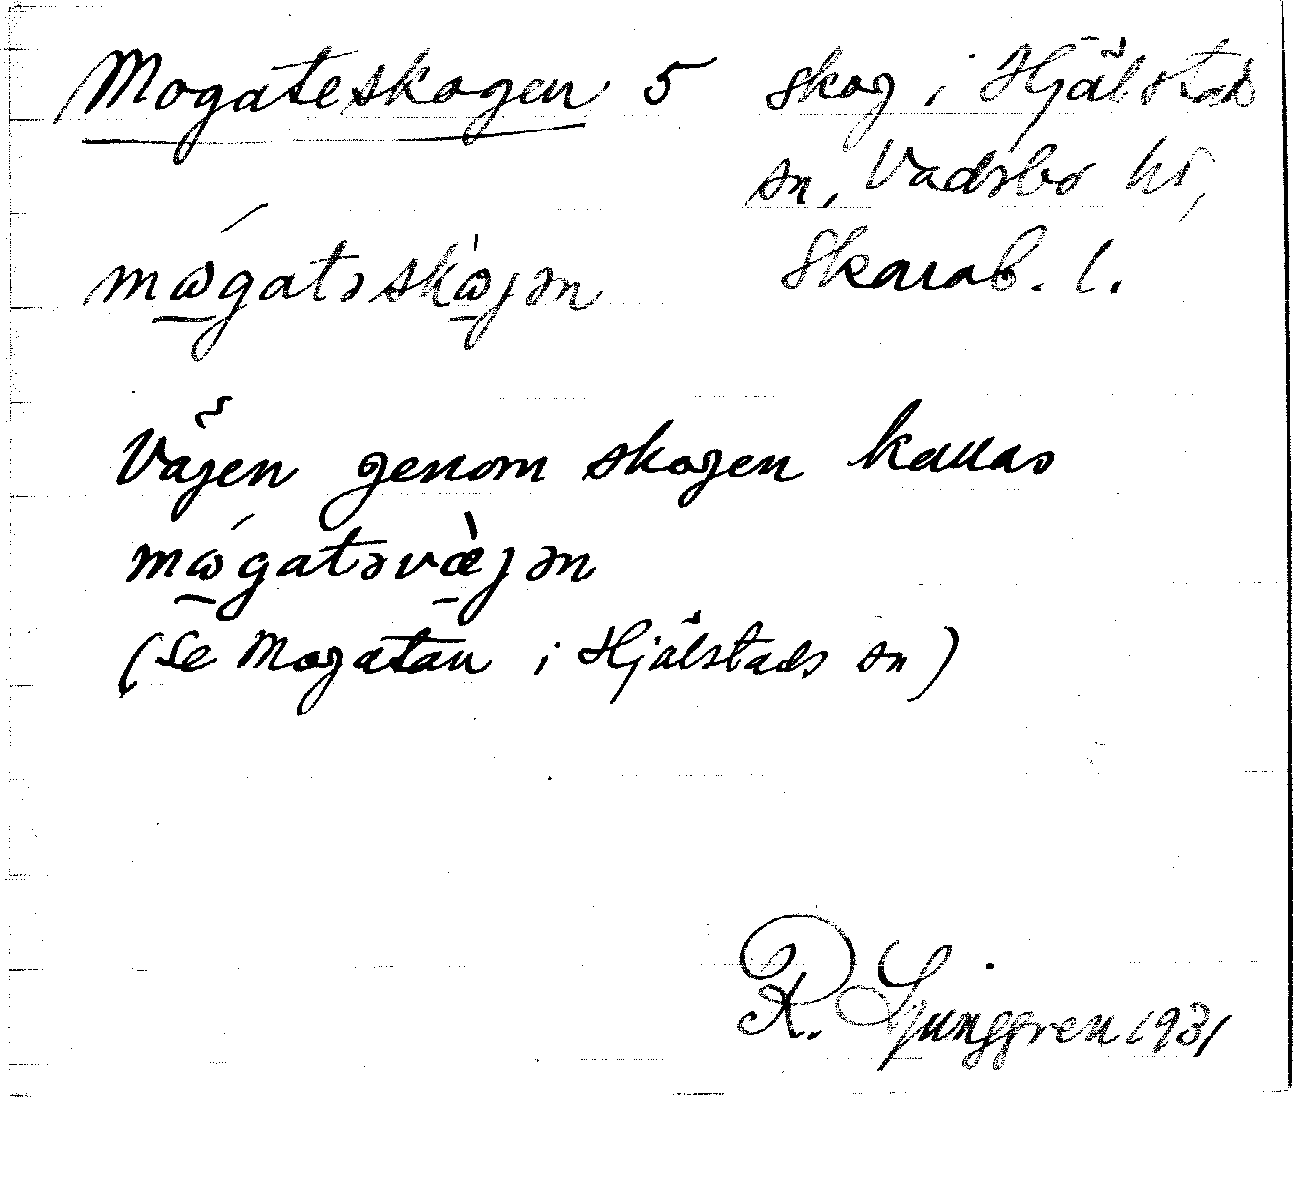 Mogateskogen 5 skog i Hjälstads
sn, Vadsbo hd,
Skarab. l.
mωgatəskωjən
Vägen genom skogen kallas
mωgatəvæjən
(Se Mogatan i Hjälstads sn)
R. Ljunggren 1931